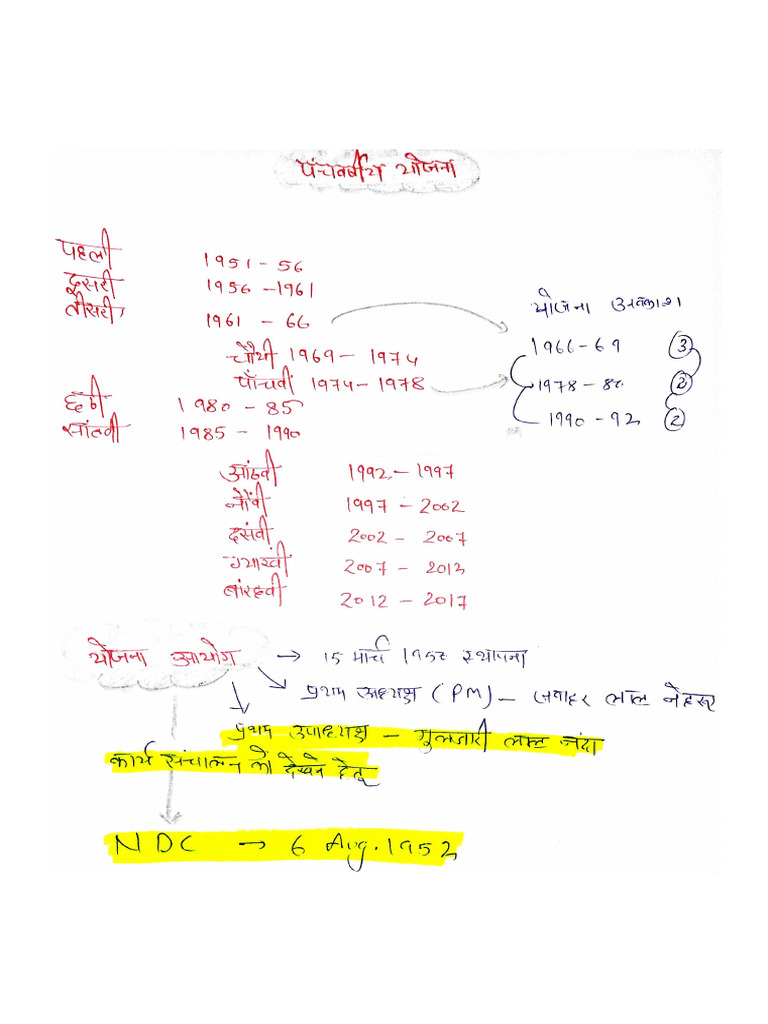 पंचवर्षीय योजना
पहली 1951-56
दूसरी 1956-1961
तीसरी 1961-66
योजना अवकाश
चौथी 1969-1974
1966-69 3
पाँचवीं 1974-1978
1978-80 2
छठी 1980-85
1990-92 2
सांतवी 1985-1990
आंठवी 1992-1997
नौंवी 1997-2002
दसंवी 2002-2007
ग्यारवीं 2007-2012
बांरहवी 2012-2017
योजना आयोग → 15 मार्च 1950 स्थापना
प्रथम अध्यक्ष (PM) - जवाहर लाल नेहरू
प्रथम उपाध्यक्ष - गुलजारी लाल नंदा
कार्य संचालन को देखने हेतू
NDC → 6 Aug. 1952